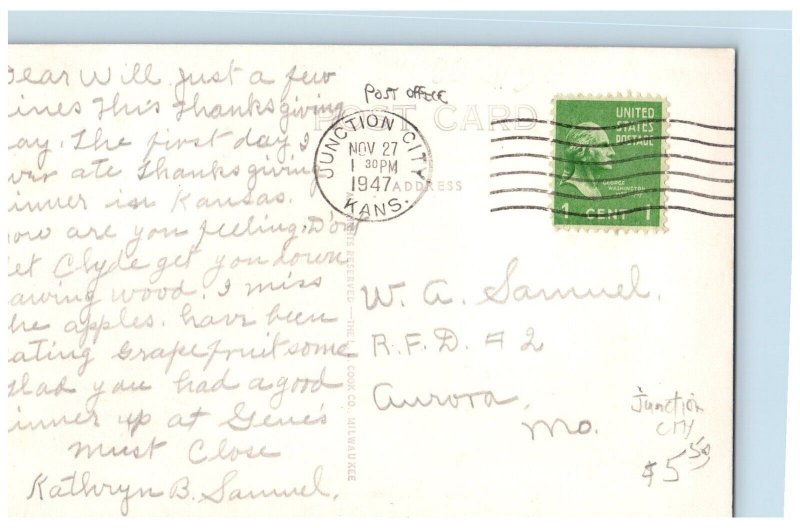 Dear Will Just a few
lines This Thanksgiving
day. The first day I
ever ate Thanksgiving
dinner in Kansas.
How are you feeling. D'ont
let Clyde get you down
sawing wood. I miss
the apples. have been
eating Grapefruit some
glad you had a good
dinner up at Gene's
must Close
Kathryn B. Samuel.
POST OFFICE
POST CARD
JUNCTION CITY
NOV 27
1 30 PM
1947
KANS.
ADDRESS
UNITED
STATES
POSTAGE
GEORGE
WASHINGTON
1 CENT 1
RIGHTS RESERVED—THE L. L. COOK CO. MILWAUKEE
W. A. Samuel.
R.F.D. # 2
Aurora,
Mo.
Junction
City
$5.50